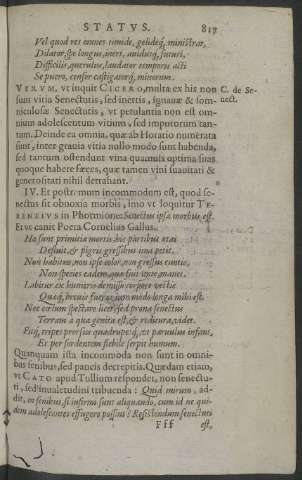 STATVS. 817
Vel quod res omnes timide, gelideq́, ministrat,
Dilator, spe longus, iners, avidusq́, futuri,
Difficilis, querulus, laudator temporis acti
Se puero, censor castigatorq́, minorum.
VERVM, vt inquit CICERO, multa ex his non
sunt vitia Senectutis, sed inertis, ignauæ & som-
niculosæ Senectutis, vt petulantia non est om-
nium adolescentum vitium, sed improborum tan-
tum. Deinde ea omnia, quæ ab Horatio numerata
sunt, inter gravia vitia nullo modo sunt habenda,
sed tantum ostendunt vina quamuis optima suas
quoque habere fæces, quæ tamen vini suavitati &
generositati nihil detrahant.
C. de Se-
nect.
IV. Et postremum incommodum est, quod se-
nectus sit obnoxia morbis, imo vt loquitur TE-
RENTIVS in Phormione: Senectus ipsa morbus est.
Et vt canit Poeta Cornelius Gallus.
Hæ sunt primitiæ mortis, his partibus ætas
Defluit, & pigris gressibus ima petit.
Non habitus, non ipse color, non gressus euntis,
Non species eadem quæ fuit ante, manet.
Labitur ex humeris demisso corpore vestis
Quæq́, brevis fuerat, iam modo longa mihi est.
Nec cœlum spectare licet, sed prona senectus
Terram à qua genita est, & reditura, videt.
Fitq́, tripes prorsus quadrupesq́, vt parvulus infans,
Et per sordentem flebile serpit humum.
Quinquam ista incommoda non sunt in omni-
bus senibus, sed paucis decrepitis. Quædam etiam,
vt CATO apud Tullium respondet, non senectu-
ti, sed imualetudini tribuenda: Quid mirum, ad-
dit, in senibus, si infirmi sunt aliquando, cum id ne qui-
dem adolescentes effugere possint? Resistendum senectuti
Fff est,